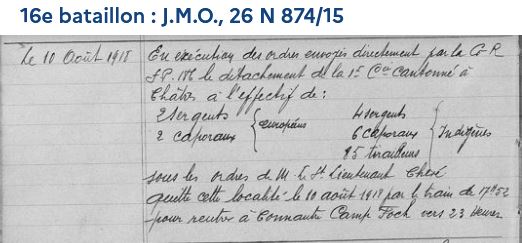 16e bataillon : J.M.O., 26 N 874/15
Le 10 Août 1918 En exécution des ordres envoyés directement par la G-R
le détachement de la 1e Cie cantonné à
Châtres à l'effectif de :
2 Sergents 4 sergents
2 caporaux européens 6 Caporaux Indigènes
15 tirailleurs
sous les ordres de M. le St Lieutenant
quitte cette localité le 10 août 1918 par le train de 17h52
pour rentrer à Connantre Camp Foch vers 23 heures